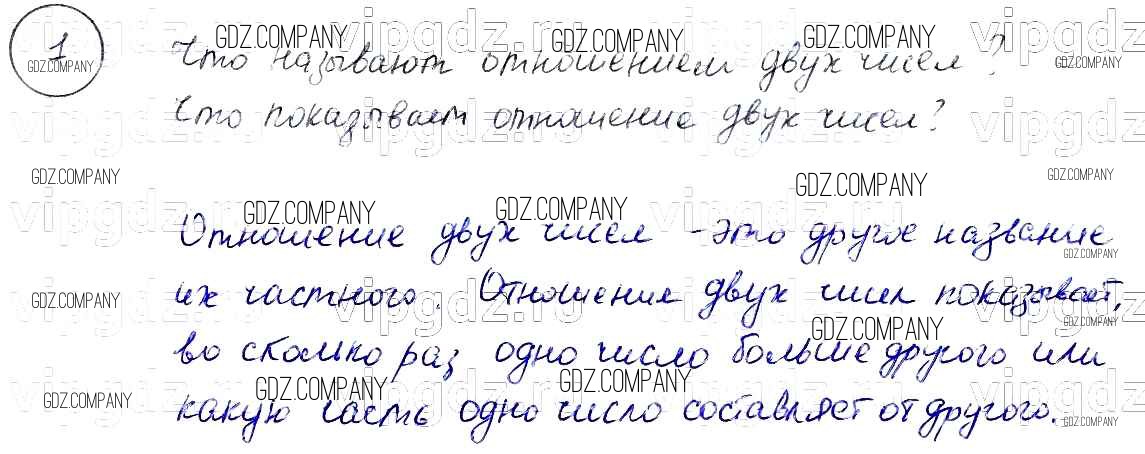 1
Что называют отношением двух чисел?
Что показывает отношение двух чисел?
Отношение двух чисел - это другое название
их частного. Отношение двух чисел показывает,
во сколько раз одно число больше другого или
какую часть одно число составляет от другого.
GDZ.COMPANY
vipgdz.ru